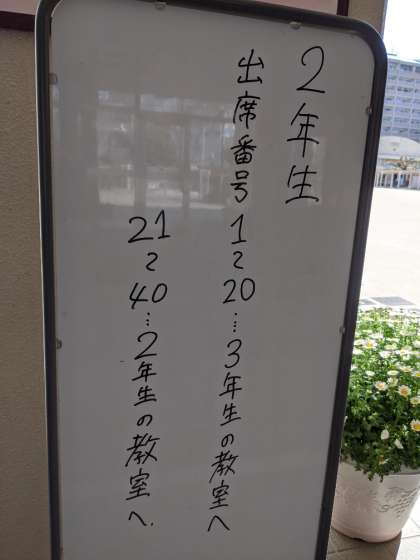 2年生
出席番号 1～20…3年生の教室へ
21～40…2年生の教室へ.